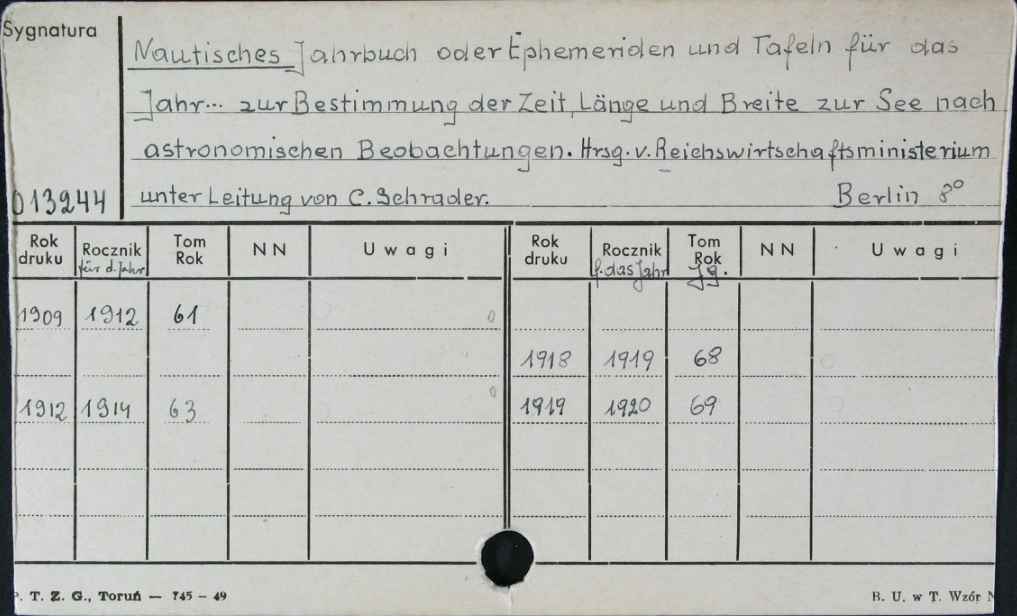 Sygnatura
Nautisches Jahrbuch oder Ephemeriden und Tafeln für das
Jahr... zur Bestimmung der Zeit, Länge und Breite zur See nach
astronomischen Beobachtungen. Hrsg. v. Reichswirtschaftsministerium
013244 unter Leitung von C. Schrader. Berlin 8°
Rok druku Rocznik für d. Jahr Tom Rok NN Uwagi Rok druku Rocznik f. das Jahr Tom Rok Jg. NN Uwagi
1909 1912 61 0
1918 1919 68
1912 1914 63 0 1919 1920 69
P. T. Z. G., Toruń — 745 — 49 B. U. w T. Wzór N